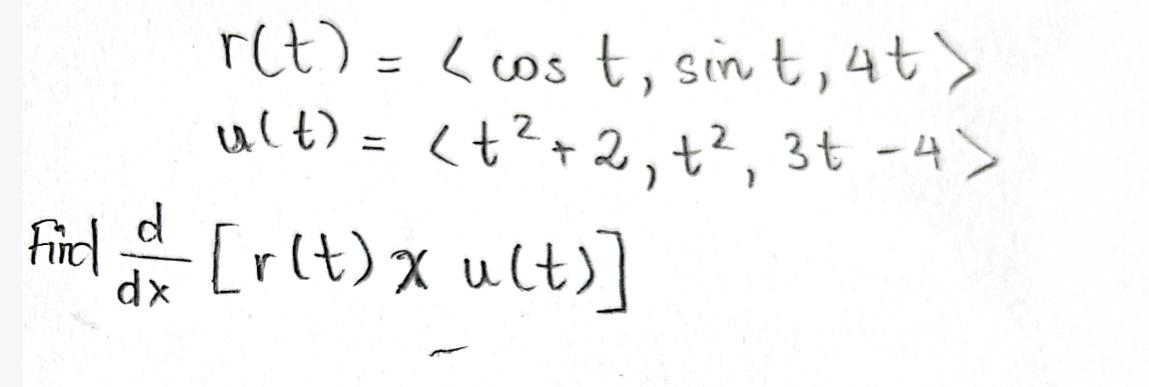 r(t) = < cos t, sin t, 4t >
u(t) = < t² + 2, t², 3t - 4 >
Find d/dx [r(t) x u(t)]